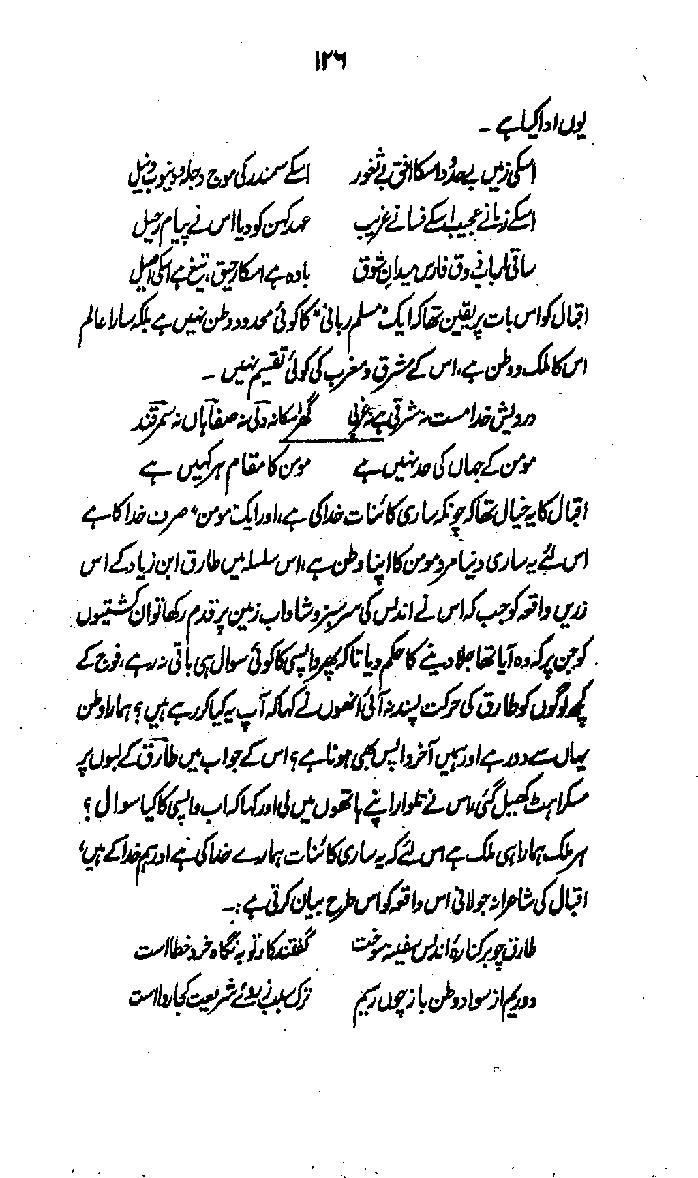 ۱۲۶
یوں ادا کیا ہے ۔
اسکی زمیں بے حدود اسکا افق بے ثغور اسکے سمندر کی موج دجلہ و دنیوب و نیل
اسکے زمانے عجیب اسکے فسانے غریب عہد کہن کو دیا اس نے پیام رحیل
ساقی ارباب ذوق فارس میدان شوق بادہ ہے اسکا رحیق، تیغ ہے اسکی اصیل
اقبال کو اس بات پر یقین تھا کہ ایک "مسلم ربانی" کا کوئی محدود وطن نہیں ہے بلکہ سارا عالم
اس کا ملک و وطن ہے، اس کے مشرق و مغرب کی کوئی تقسیم نہیں ۔
درویش خدا مست نہ شرقی ہے نہ غربی گھر اسکا نہ دلی نہ صفاہاں نہ سمرقند
مومن کے جہاں کی حد نہیں ہے مومن کا مقام ہر کہیں ہے
اقبال کا یہ خیال تھا کہ چونکہ ساری کائنات خدا کی ہے، اور ایک مومن، صرف خدا کا ہے
اس لئے یہ ساری دنیا مرد مومن کا اپنا وطن ہے، اس سلسلہ میں طارق ابن زیاد کے اس
زریں واقعہ کو جب کہ اس نے اندلس کی سرسبز و شاداب زمین پر قدم رکھا تو ان کشتیوں
کو جن پر کہ وہ آیا تھا جلا دینے کا حکم دیا تاکہ پھر واپسی کا کوئی سوال ہی باقی نہ رہے، فوج کے
کچھ لوگوں کو طارق کی حرکت پسند نہ آئی انھوں نے کہا کہ آپ یہ کیا کر رہے ہیں؟ ہمارا وطن
یہاں سے دور ہے اور ہمیں آخر واپس بھی ہونا ہے؟ اس کے جواب میں طارق کے لبوں پر
مسکراہٹ کھیل گئی، اس نے تلوار اپنے ہاتھوں میں لی اور کہا کہ اب واپسی کا کیا سوال؟
ہر ملک ہمارا ہی ملک ہے اس لئے کہ یہ ساری کائنات ہمارے خدا کی ہے اور ہم خدا کے ہیں،
اقبال کی شاعرانہ جولانی اس واقعہ کو اس طرح بیان کرتی ہے :۔
طارق چو بر کنارۂ اندلس سفینہ سوخت گفتند کار تو بہ نگاہ خرد خطا است
دوریم از سواد وطن باز چوں رسیم ترک سبب ز روئے شریعت کجا روا است